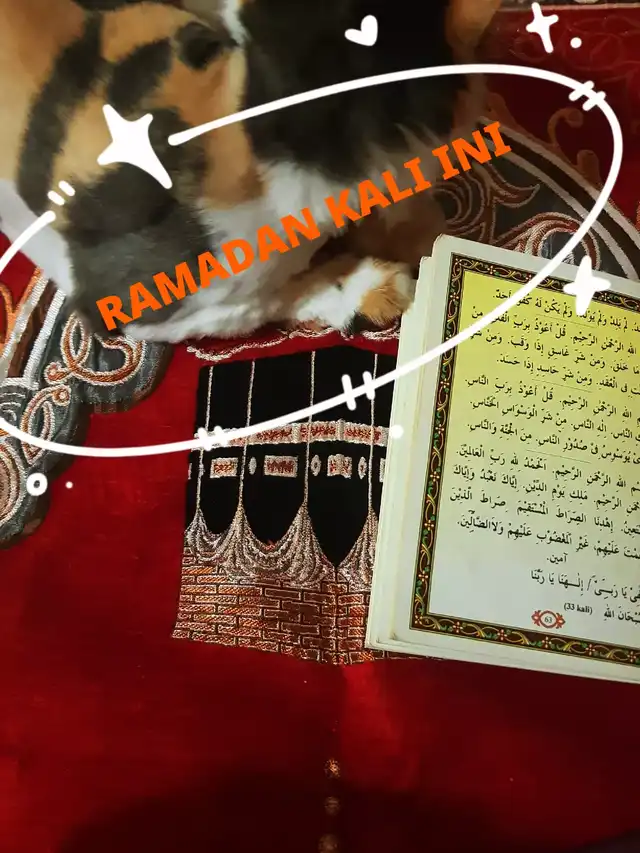 RAMADAN KALI INI
لَمْ يَلِدْ وَلَمْ يُوْلَدْ وَلَمْ يَكُنْ لَهُ كُفُوًا أَحَدٌ.
الله الرَّحْمٰنِ الرَّحِيْمِ. قُلْ أَعُوْذُ بِرَبِّ الْفَلَقِ مِنْ
مَا خَلَقَ. وَمِنْ شَرِّ غَاسِقٍ إِذَا وَقَبَ. وَمِنْ شَرِّ
فِى الْعُقَدِ. وَمِنْ شَرِّ حَاسِدٍ إِذَا حَسَدَ.
الله الرَّحْمٰنِ الرَّحِيْمِ. قُلْ أَعُوْذُ بِرَبِّ النَّاسِ.
النَّاسِ. إِلٰهِ النَّاسِ. مِنْ شَرِّ الْوَسْوَاسِ الْخَنَّاسِ.
يُوَسْوِسُ فِى صُدُوْرِ النَّاسِ. مِنَ الْجِنَّةِ وَالنَّاسِ.
الله الرَّحْمٰنِ الرَّحِيْمِ. اَلْحَمْدُ لِلّٰهِ رَبِّ الْعَالَمِيْنَ
الرَّحِيْمِ. مٰلِكِ يَوْمِ الدِّيْنِ. إِيَّاكَ نَعْبُدُ وَإِيَّاكَ
إِهْدِنَا الصِّرَاطَ الْمُسْتَقِيْمَ. صِرَاطَ الَّذِيْنَ
عَلَيْهِمْ. غَيْرِ الْمَغْضُوْبِ عَلَيْهِمْ وَلَا الضَّالِّيْنَ.
آمين.
يَا رَبِّىْ / إِلٰهَنَا يَا رَبَّنَا
سُبْحَانَ اللهِ (33 kali)
63